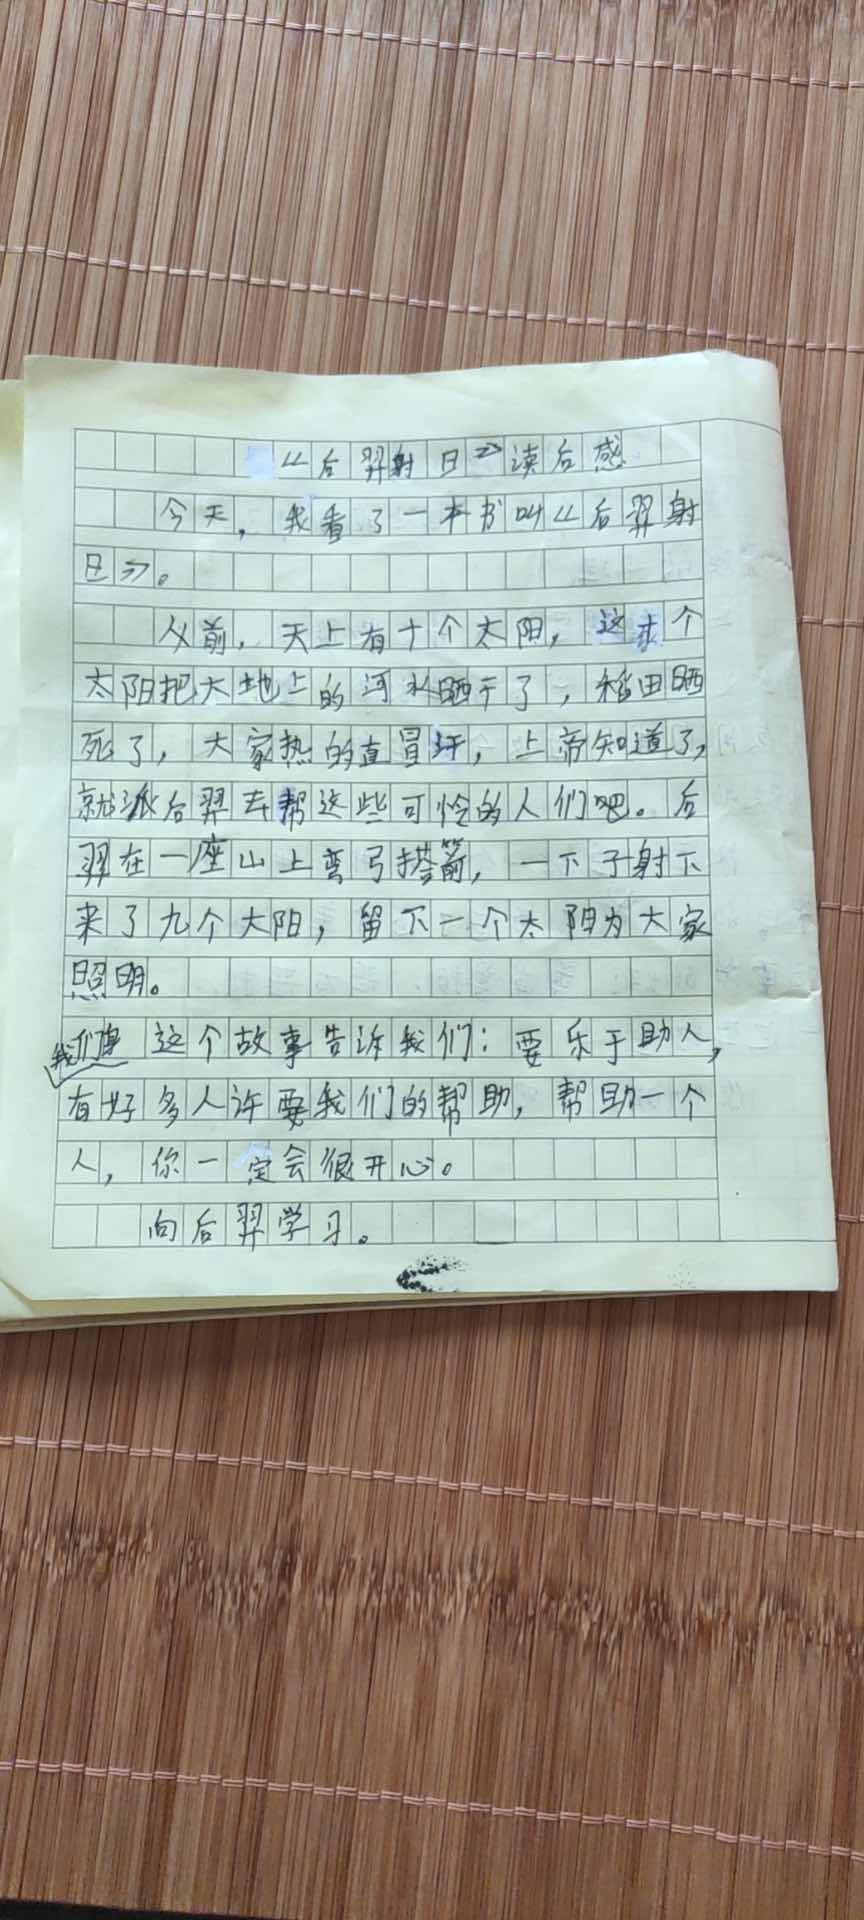 《后羿射日》读后感
今天，我看了一本书叫《后羿射
日》。
从前，天上有十个太阳，这十个
太阳把大地上的河水晒干了，稻田晒
死了，大家热的直冒汗，上帝知道了，
就派后羿去帮这些可怜的人们吧。后
羿在一座山上弯弓搭箭，一下子射下
来了九个太阳，留下一个太阳为大家
照明。
我们 这个故事告诉我们：要乐于助人，
有好多人许要我们的帮助，帮助一个
人，你一定会很开心。
向后羿学习。